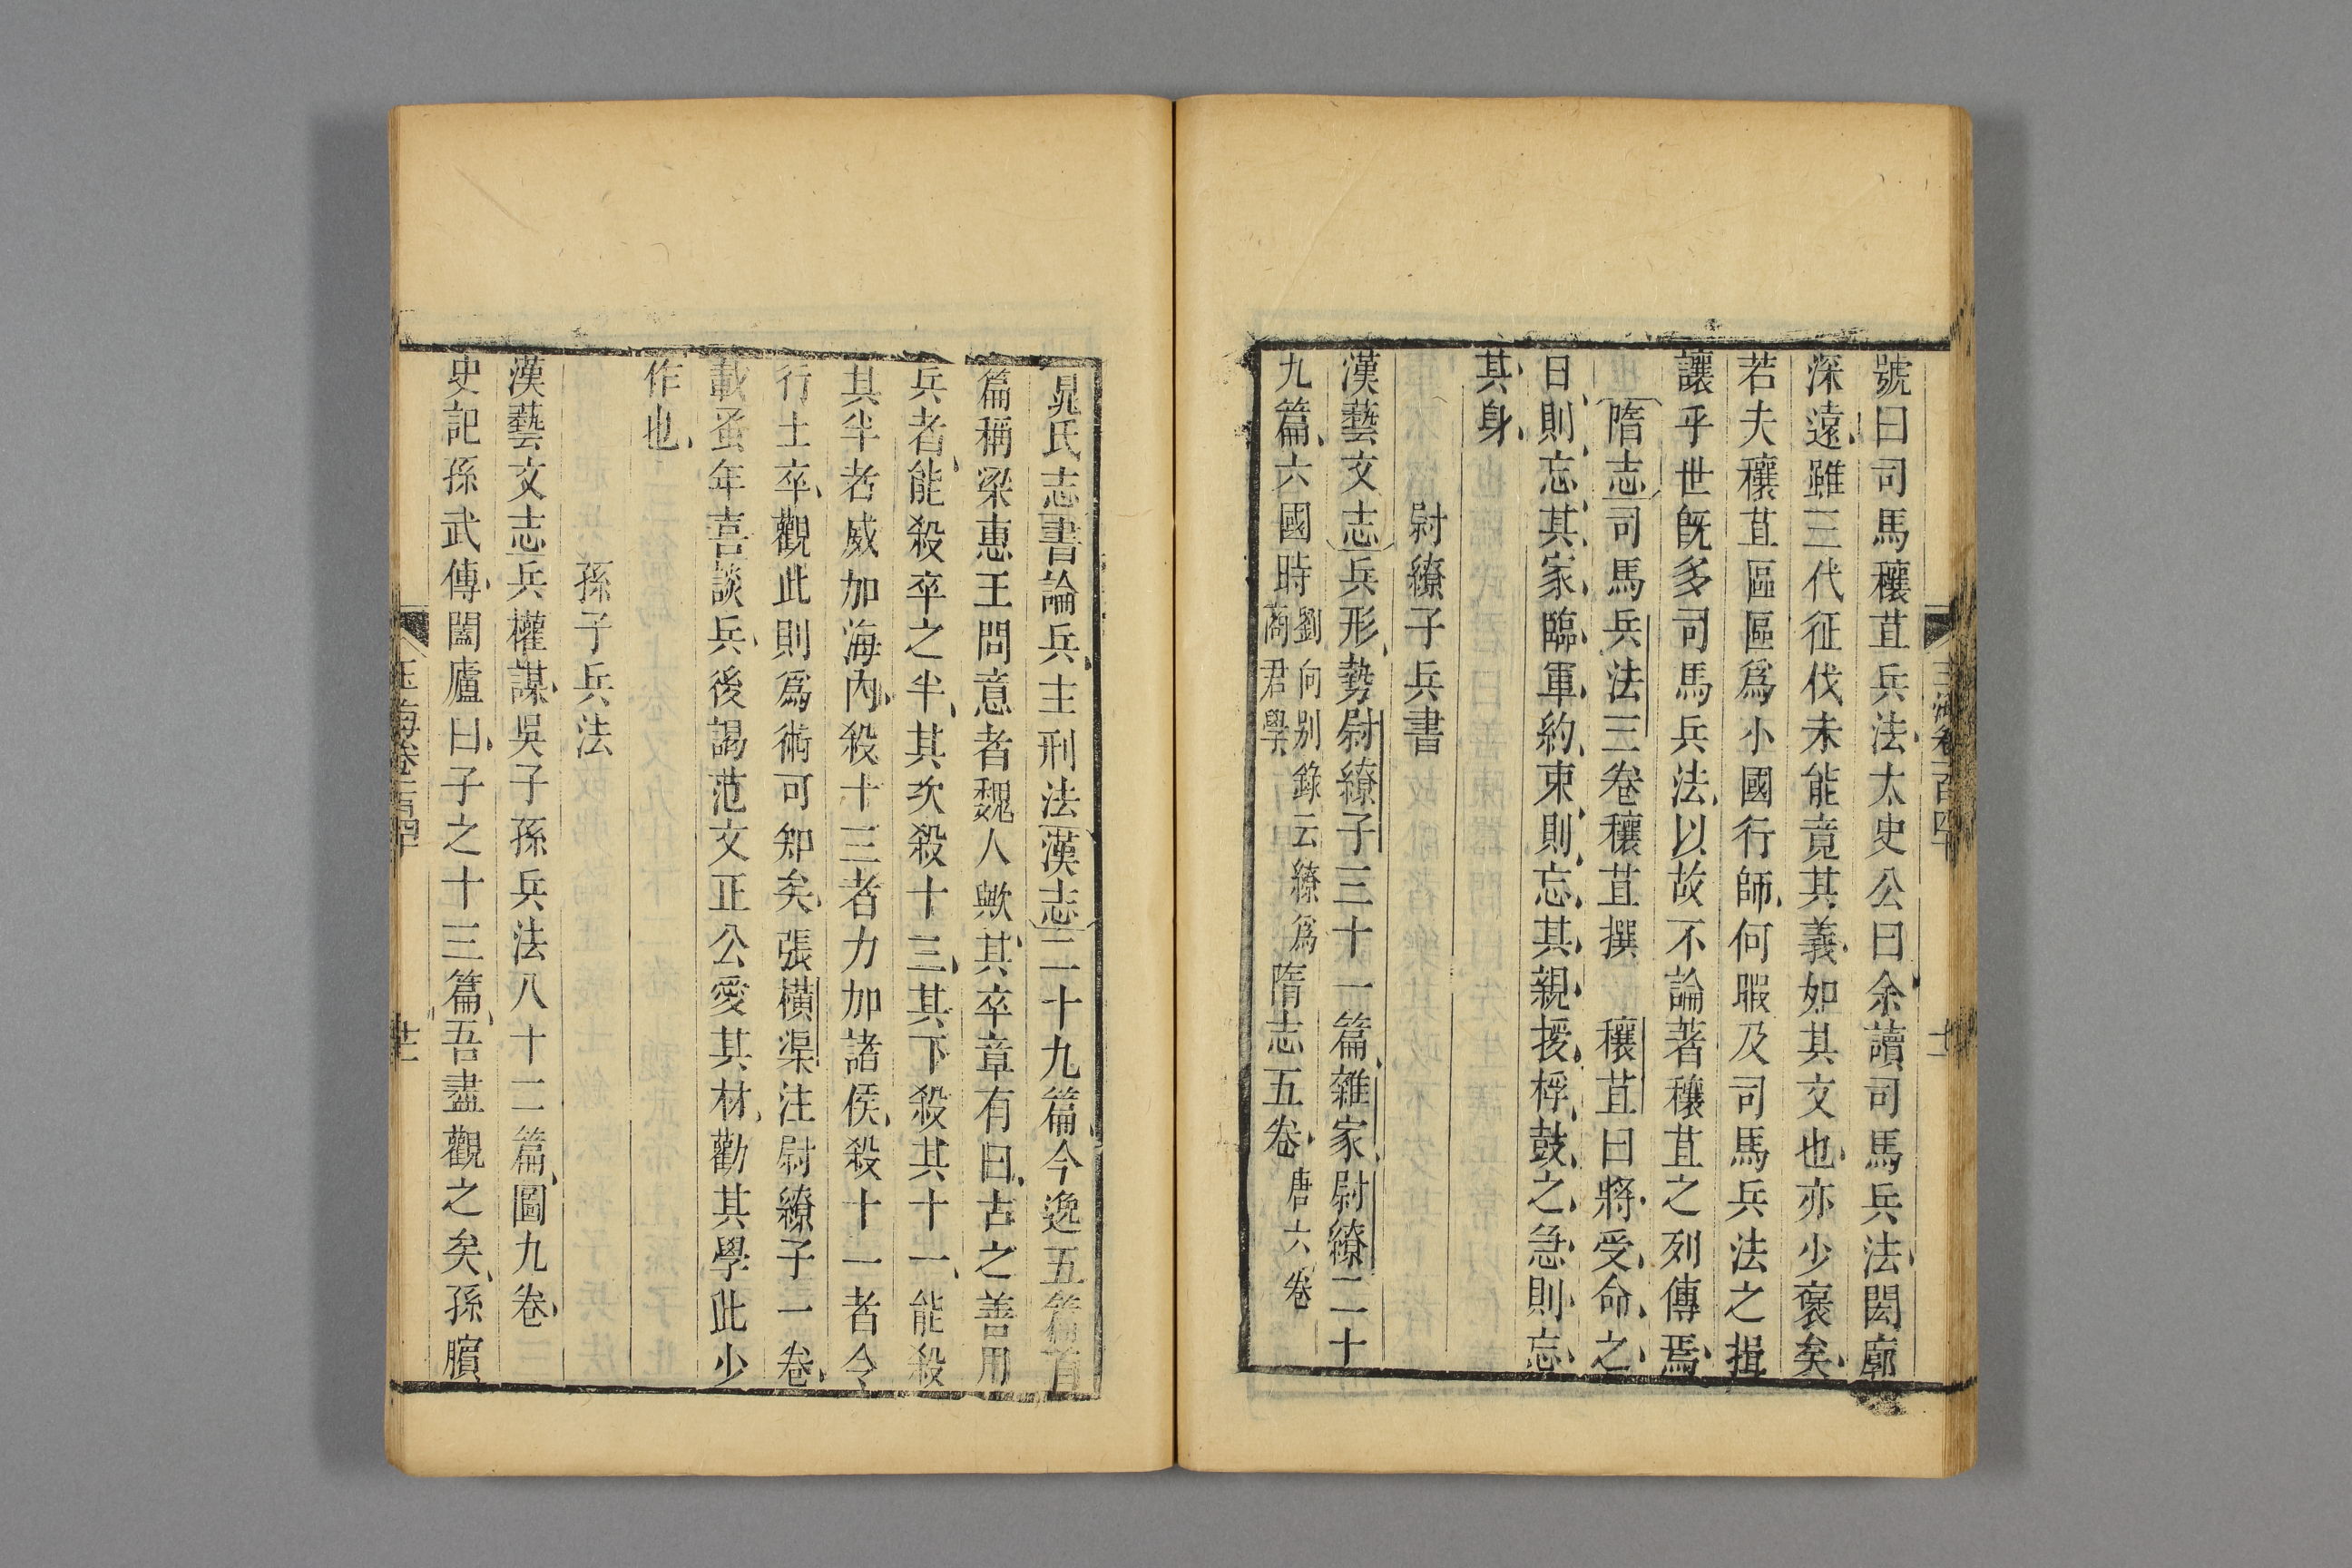 號曰司馬穰苴兵法太史公曰余讀司馬兵法閎廓
深遠雖三代征伐未能竟其義如其文也亦少襃矣
若夫穰苴區區爲小國行師何暇及司馬兵法之揖
讓乎世旣多司馬兵法以故不論著穰苴之列傳焉
隋志司馬兵法三卷穰苴撰 穰苴曰將受命之
日則忘其家臨軍約束則忘其親援桴鼓之急則忘
其身
尉繚子兵書
漢藝文志兵形勢尉繚子三十一篇雜家尉繚二十
九篇六國時劉向别錄云繚爲商君學隋志五卷唐六卷
晁氏志書論兵主刑法漢志二十九篇今逸五篇首
篇稱梁惠王問意者魏人歟其卒章有曰古之善用
兵者能殺卒之半其次殺十三其下殺其十一能殺
其半者威加海內殺十三者力加諸侯殺十一者令
行士卒觀此則爲術可知矣張橫渠注尉繚子一卷
載蚤年喜談兵後謁范文正公愛其材勸其學此少
作也
孫子兵法
漢藝文志兵權謀吳子孫兵法八十二篇圖九卷
史記孫武傳闔廬曰子之十三篇吾盡觀之矣孫臏